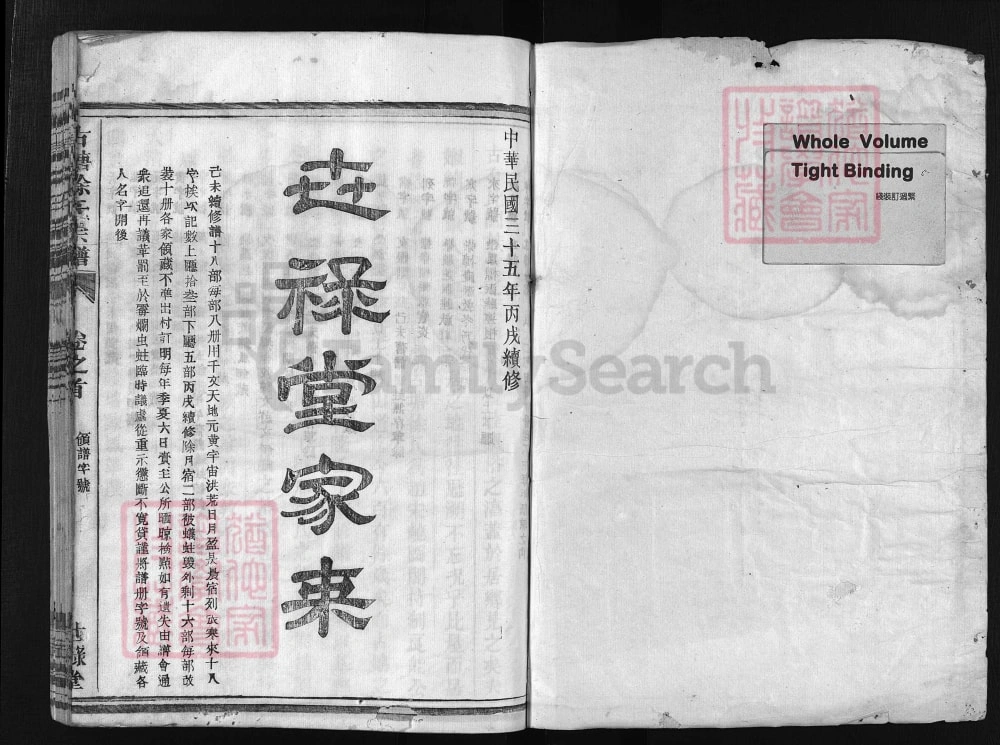 Whole Volume
Tight Binding
線裝訂過緊
中華民國三十五年丙戌續修
世祿堂家乘
己未續修譜十八部每部八册用千文天地元黄宇宙洪荒日月盈昃晨宿列張寒來十八
字挨次記數上廳拾叁部下廳五部丙戌續修除月宿二部被蟻蛀毀外剩十六部每部改
裝十册各家領藏不準出村訂明每年季夏六日賫至公所晒晾檢點如有遺失由譜會通
衆追還再議革罰至於霉爛虫蛀臨時議處從重示懲斷不寬貸謹將譜册字號及領藏各
人名字開後
徐氏宗譜
卷之首
領譜字號
世祿堂
FamilySearch